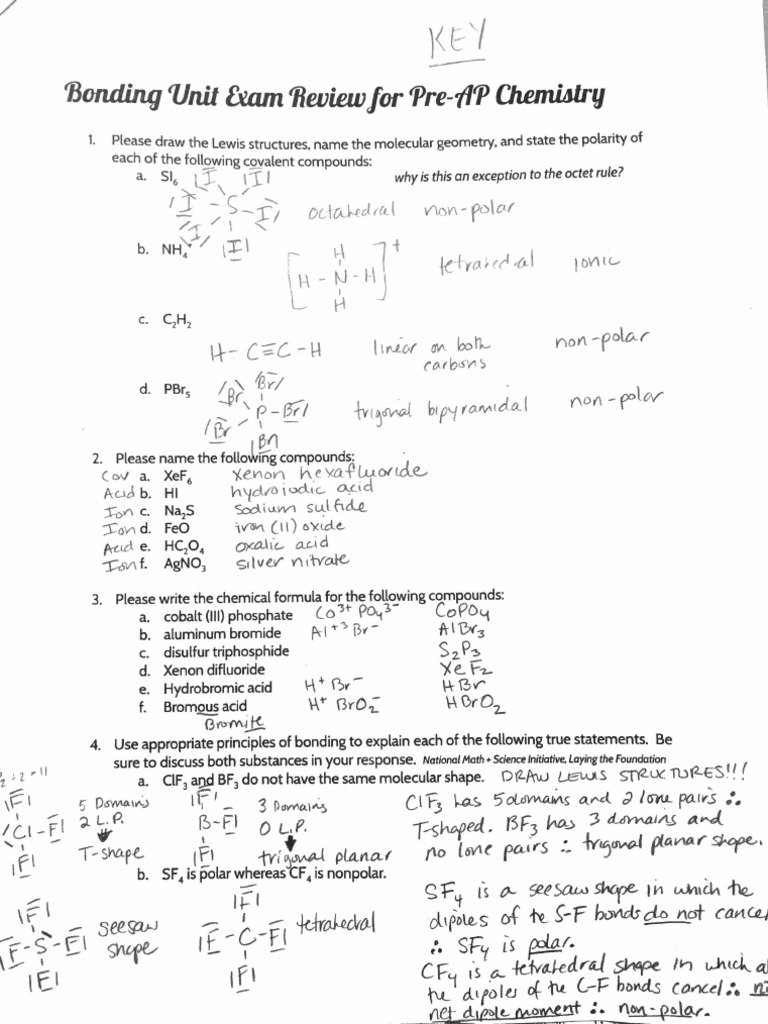 KEY
Bonding Unit Exam Review for Pre-AP Chemistry
1. Please draw the Lewis structures, name the molecular geometry, and state the polarity of
each of the following covalent compounds:
a. SI₆ why is this an exception to the octet rule?
I I
I - S - I
I I
octahedral non-polar
b. NH₄⁺
H
[H - N - H]⁺
H
tetrahedral ionic
c. C₂H₂
H - C≡C - H linear on both carbons non-polar
d. PBr₅
Br Br
P - Br
Br Br
trigonal bipyramidal non-polar
2. Please name the following compounds:
Cov a. XeF₆ Xenon hexafluoride
Acid b. HI hydroiodic acid
Ion c. Na₂S sodium sulfide
Ion d. FeO iron (II) oxide
Acid e. HC₂O₄ oxalic acid
Ion f. AgNO₃ silver nitrate
3. Please write the chemical formula for the following compounds:
a. cobalt (III) phosphate Co³⁺ PO₄³⁻ CoPO₄
b. aluminum bromide Al⁺³ Br⁻ AlBr₃
c. disulfur triphosphide S₂P₃
d. Xenon difluoride XeF₂
e. Hydrobromic acid H⁺ Br⁻ HBr
f. Bromous acid H⁺ BrO₂⁻ HBrO₂
Bromite
4. Use appropriate principles of bonding to explain each of the following true statements. Be
sure to discuss both substances in your response. National Math + Science Initiative, Laying the Foundation
a. ClF₃ and BF₃ do not have the same molecular shape. DRAW LEWIS STRUCTURES!!!
F
Cl - F
F
5 Domains
2 L.P.
T-shape
F
B - F
F
3 Domains
0 L.P.
trigonal planar
ClF₃ has 5 domains and 2 lone pairs ∴
T-shaped. BF₃ has 3 domains and
no lone pairs ∴ trigonal planar shape.
b. SF₄ is polar whereas CF₄ is nonpolar.
F
F - S - F
F
seesaw
shape
F
F - C - F
F
tetrahedral
SF₄ is a seesaw shape in which the
dipoles of the S-F bonds do not cancel
∴ SF₄ is polar.
CF₄ is a tetrahedral shape in which
the dipoles of the C-F bonds cancel ∴
net dipole moment ∴ non-polar.